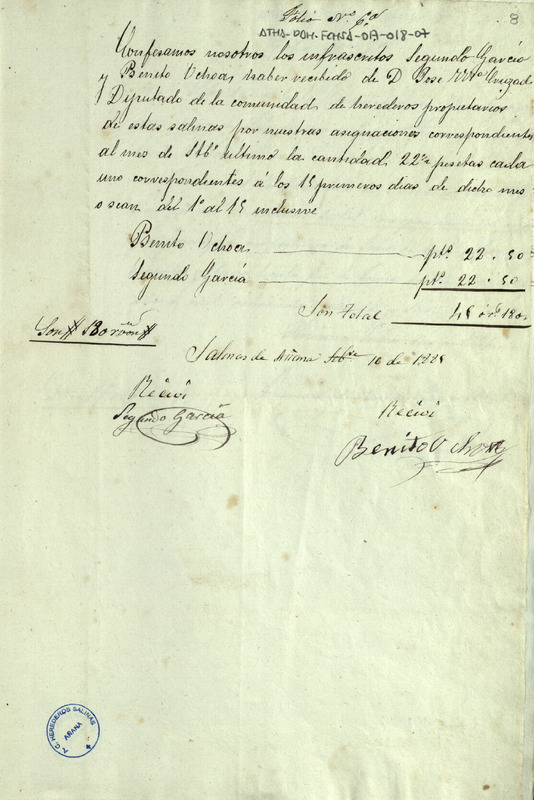 Folio Nº 6º
8
ATHA-DOH-FCHSA-07-018-07
Confesamos nosotros los infrascritos Segundo García
y Benito Ochoa, haber recibido de D. Jose
Diputado de la comunidad de herederos propietarios
de estas salinas por nuestras asignaciones correspondientes
al mes de Stbe. ultimo la cantidad, 22 pesetas cada
uno correspondientes á los 15 primeros dias de dicho mes
o sean del 1º al 15 inclusive
Benito Ochoa ptas. 22.50
Segundo García ptas. 22.50
Son total 45 ó rs. 180
Son # 180 rvon #
Salinas de Añana 10 de
Recivi
Segundo García
Recivi
Benito Ochoa
C. HEREDEROS SALINAS
AÑANA